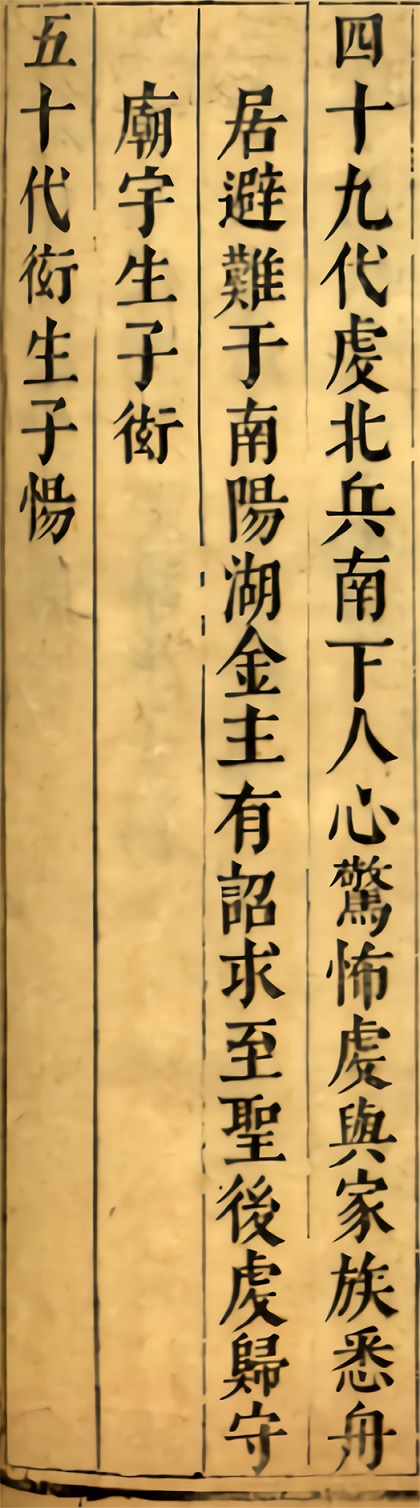 四十九代虔北兵南下人心驚怖虔與家族悉舟
居避難于南陽湖金主有詔求至聖後虔歸守
廟宇生子衒
五十代衒生子惕